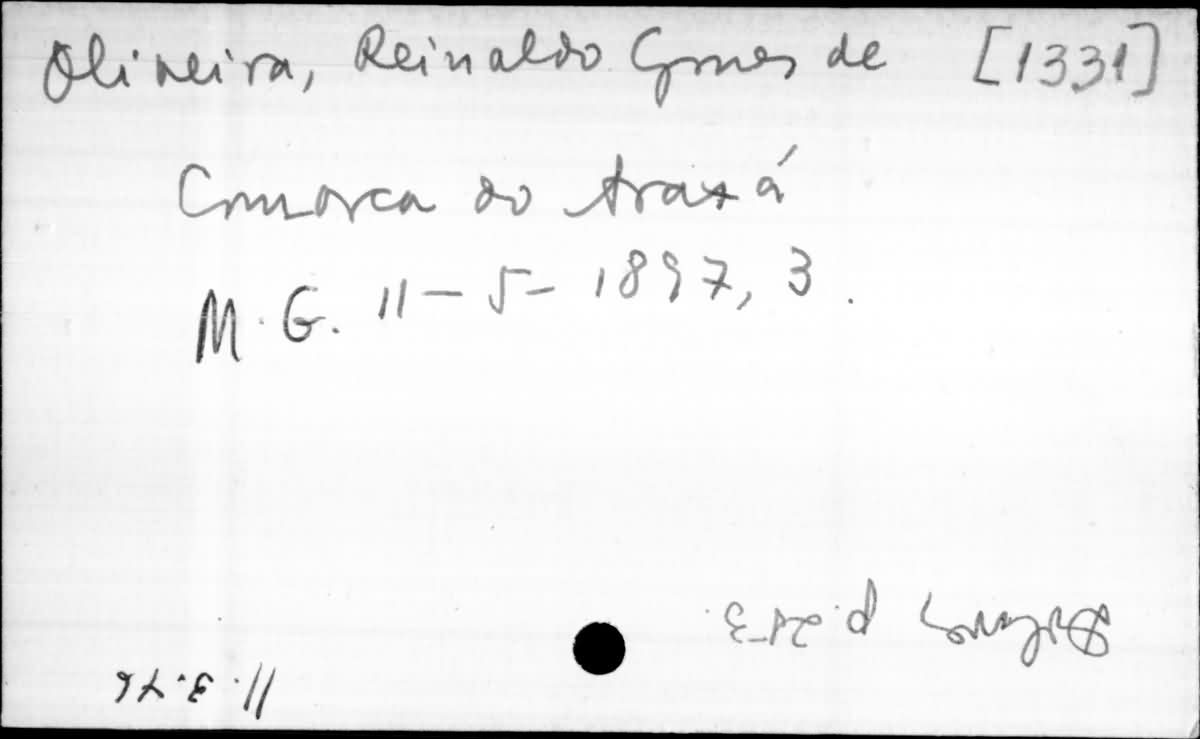 Oliveira, Reinaldo Gomes de [1331]
Comarca do Araxá
M. G. 11-5-1897, 3.
11.3.76